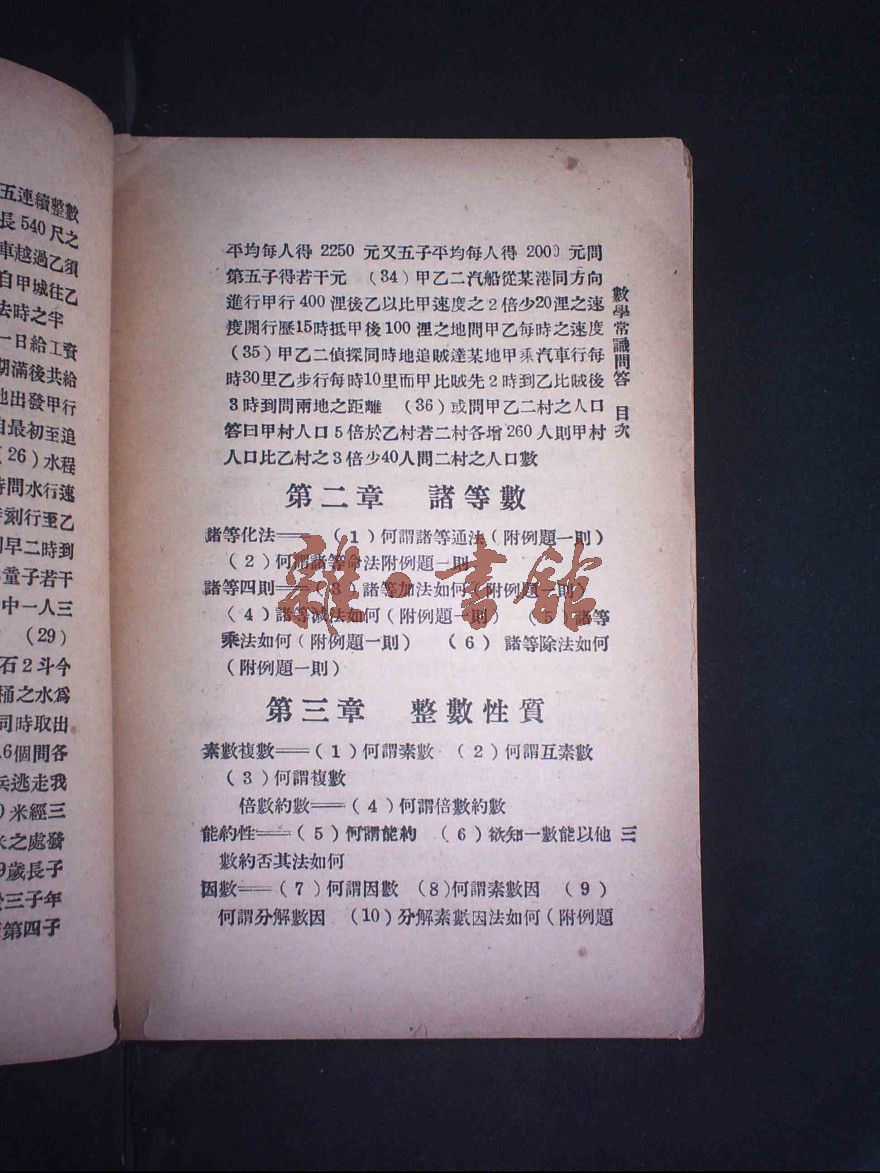 五連續整數
長 540 尺之
車越過乙須
自甲城往乙
去時之牢
一日給工資
期滿後共給
地出發甲行
自最初至追
(26)水程
時間水行速
時刻行至乙
早二時到
童子若干
中一人三
(29)
石 2 斗今
桶之水爲
同時取出
6個問各
兵逃走我
米經三
之處發
9歲長子
於三子年
第四子
平均每人得 2250 元又五子平均每人得 2000 元問
第五子得若干元 (34)甲乙二汽船從某港同方向
進行甲行 400 浬後乙以比甲速度之 2 倍少 20 浬之速
度開行歷15時抵甲後 100 浬之地問甲乙每時之速度
(35)甲乙二偵探同時地追賊達某地甲乘汽車行每
時30里乙步行每時10里而甲比賊先 2 時到乙比賊後
3 時到問兩地之距離 (36)或問甲乙二村之人口
答曰甲村人口 5 倍於乙村若二村各增 260 人則甲村
人口比乙村之 3 倍少40人間二村之人口數
第二章 諸等數
諸等化法══ (1)何謂諸等通法(附例題一則)
(2)何謂諸等命法附例題一則
諸等四則══(3)諸等加法如何(附例題一則)
(4)諸等減法如何(附例題一則) (5)諸等
乘法如何(附例題一則) (6) 諸等除法如何
(附例題一則)
第三章 整數性質
素數複數══(1)何謂素數 (2)何謂互素數
(3)何謂複數
倍數約數══(4)何謂倍數約數
能約性══(5)何謂能約 (6)欲知一數能以他
數約否其法如何
因數══(7)何謂因數 (8)何謂素數因 (9)
何謂分解數因 (10)分解素數因法如何(附例題
數學常識問答 目次
三
雜·書館